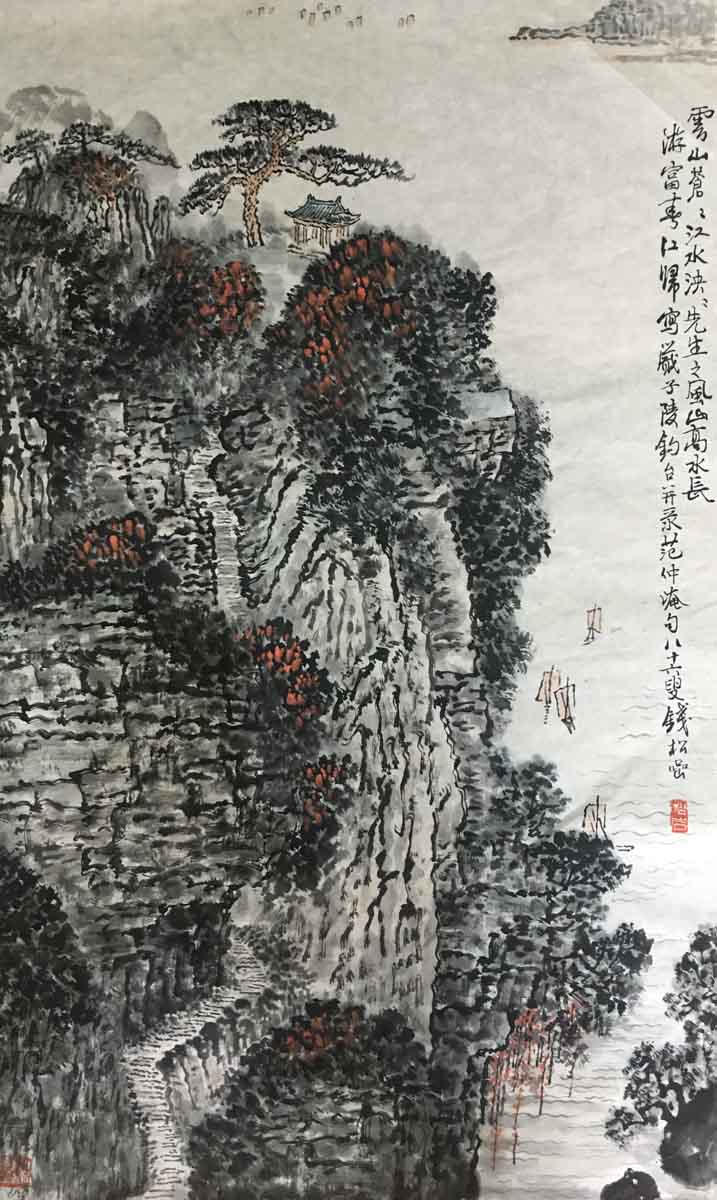 雲山蒼〻江水泱〻先生之風山高水長
游富春江歸寫嚴子陵釣台并录范仲淹句八十六叟錢松喦